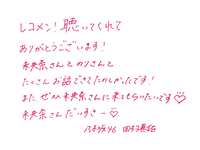 レコメン！聴いてくれて
ありがとうございます！
未央奈さんとのりさんと
たくさんお話できてたのしかったです！
また ぜひ未央奈さんに来てもらいたいです♡
未央奈さんだいすきー♡
乃木坂46